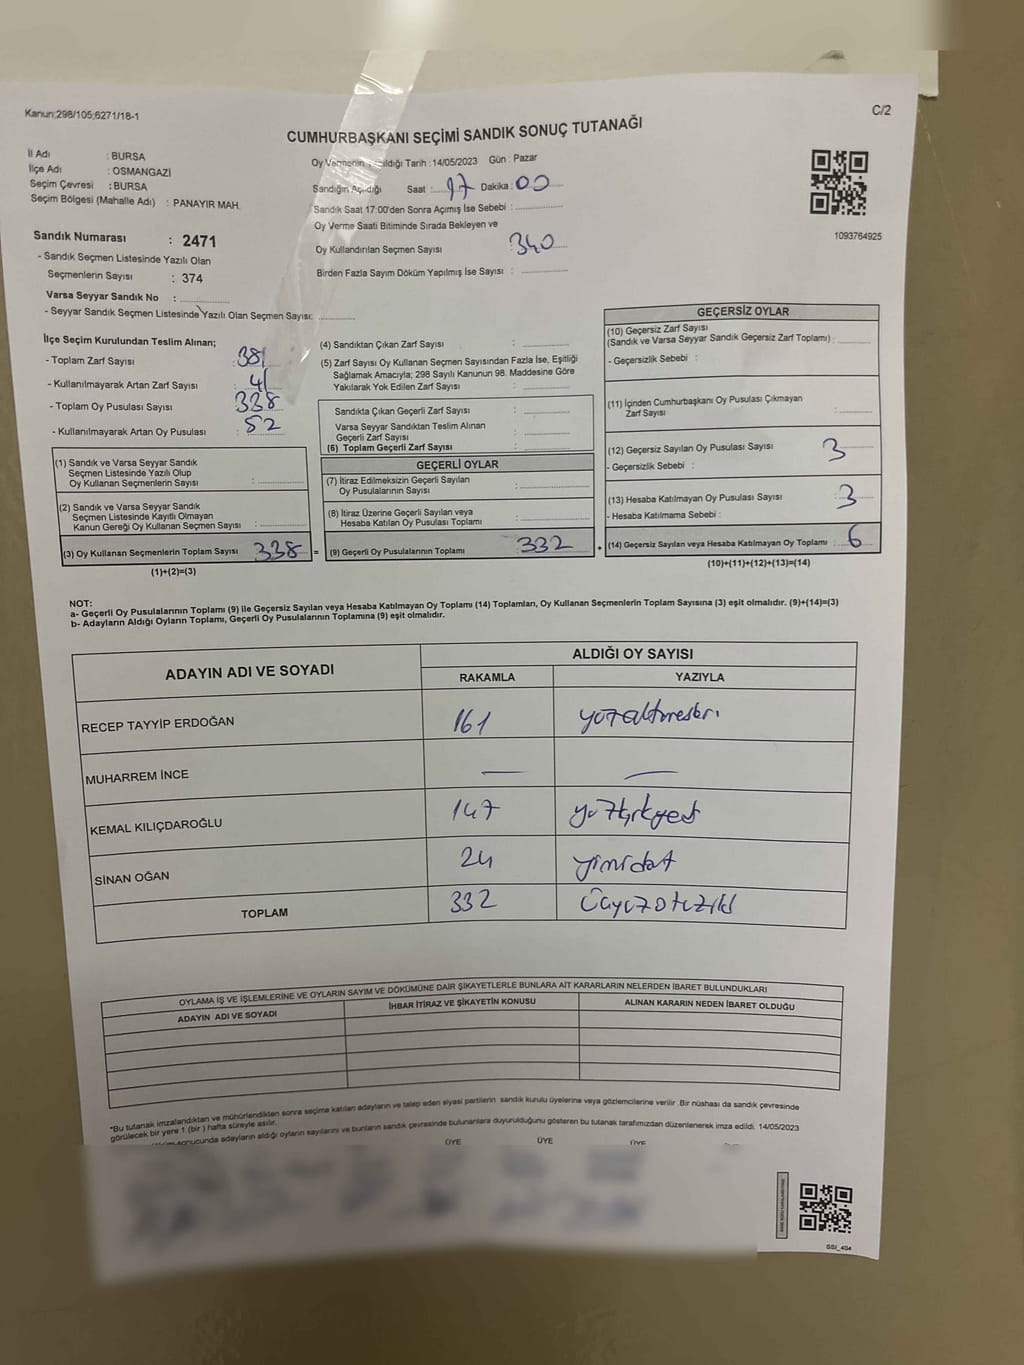 Kanun;298/105;6271/18-1
C/2
CUMHURBAŞKANI SEÇİMİ SANDIK SONUÇ TUTANAĞI
İl Adı : BURSA
İlçe Adı : OSMANGAZİ
Seçim Çevresi : BURSA
Seçim Bölgesi (Mahalle Adı) : PANAYIR MAH.
Oy Vermenin Tarih : 14/05/2023 Gün : Pazar
Sandığın Açıldığı Saat : 17 Dakika : 00
Sandık Saat 17:00'den Sonra Açımış İse Sebebi :
Oy Verme Saati Bitiminde Sırada Bekleyen ve
Oy Kullandırılan Seçmen Sayısı 340
Birden Fazla Sayım Döküm Yapılmış İse Sayısı :
1093764925
Sandık Numarası : 2471
- Sandık Seçmen Listesinde Yazılı Olan
Seçmenlerin Sayısı : 374
Varsa Seyyar Sandık No :
- Seyyar Sandık Seçmen Listesinde Yazılı Olan Seçmen Sayısı:
İlçe Seçim Kurulundan Teslim Alınan;
- Toplam Zarf Sayısı : 381
- Kullanılmayarak Artan Zarf Sayısı : 41
- Toplam Oy Pusulası Sayısı : 338
- Kullanılmayarak Artan Oy Pusulası : 52
(1) Sandık ve Varsa Seyyar Sandık
Seçmen Listesinde Yazılı Olup
Oy Kullanan Seçmenlerin Sayısı :
(2) Sandık ve Varsa Seyyar Sandık
Seçmen Listesinde Kayıtlı Olmayan
Kanun Gereği Oy Kullanan Seçmen Sayısı :
(3) Oy Kullanan Seçmenlerin Toplam Sayısı 338 =
(1)+(2)=(3)
(4) Sandıktan Çıkan Zarf Sayısı :
(5) Zarf Sayısı Oy Kullanan Seçmen Sayısından Fazla İse, Eşitliği
Sağlamak Amacıyla; 298 Sayılı Kanunun 98. Maddesine Göre
Yakılarak Yok Edilen Zarf Sayısı :
Sandıkta Çıkan Geçerli Zarf Sayısı :
Varsa Seyyar Sandıktan Teslim Alınan
Geçerli Zarf Sayısı :
(6) Toplam Geçerli Zarf Sayısı :
GEÇERLİ OYLAR
(7) İtiraz Edilmeksizin Geçerli Sayılan
Oy Pusulalarının Sayısı :
(8) İtiraz Üzerine Geçerli Sayılan veya
Hesaba Katılan Oy Pusulası Toplamı :
(9) Geçerli Oy Pusulalarının Toplamı 332 +
GEÇERSİZ OYLAR
(10) Geçersiz Zarf Sayısı
(Sandık ve Varsa Seyyar Sandık Geçersiz Zarf Toplamı) :
- Geçersizlik Sebebi :
(11) İçinden Cumhurbaşkanı Oy Pusulası Çıkmayan
Zarf Sayısı :
(12) Geçersiz Sayılan Oy Pusulası Sayısı 3
- Geçersizlik Sebebi :
(13) Hesaba Katılmayan Oy Pusulası Sayısı : 3
- Hesaba Katılmama Sebebi :
(14) Geçersiz Sayılan veya Hesaba Katılmayan Oy Toplamı : 6
(10)+(11)+(12)+(13)=(14)
NOT:
a- Geçerli Oy Pusulalarının Toplamı (9) ile Geçersiz Sayılan veya Hesaba Katılmayan Oy Toplamı (14) Toplamları, Oy Kullanan Seçmenlerin Toplam Sayısına (3) eşit olmalıdır. (9)+(14)=(3)
b- Adayların Aldığı Oyların Toplamı, Geçerli Oy Pusulalarının Toplamına (9) eşit olmalıdır.
ADAYIN ADI VE SOYADI
ALDIĞI OY SAYISI
RAKAMLA YAZIYLA
RECEP TAYYİP ERDOĞAN 161 yüzaltmışbir
MUHARREM İNCE — —
KEMAL KILIÇDAROĞLU 147 yüzkırkyedi
SİNAN OĞAN 24 yirmidört
TOPLAM 332 üçyüzotuziki
OYLAMA İŞ VE İŞLEMLERİNE VE OYLARIN SAYIM VE DÖKÜMÜNE DAİR ŞİKAYETLERLE BUNLARA AİT KARARLARIN NELERDEN İBARET BULUNDUKLARI
ADAYIN ADI VE SOYADI
İHBAR İTİRAZ VE ŞİKAYETİN KONUSU
ALINAN KARARIN NEDEN İBARET OLDUĞU
*Bu tutanak imzalandıktan ve mühürlendikten sonra seçime katılan adayların ve talep eden siyasi partilerin sandık kurulu üyelerine veya gözlemcilerine verilir .Bir nüshası da sandık çevresinde
görülecek bir yere 1 (bir ) hafta süreyle asılır.
sonucunda adayların aldığı oyların sayılarını ve bunların sandık çevresinde bulunanlara duyurulduğunu gösteren bu tutanak tarafımızdan düzenlenerek imza edildi. 14/05/2023
ÜYE ÜYE ÜYE
SSI_404